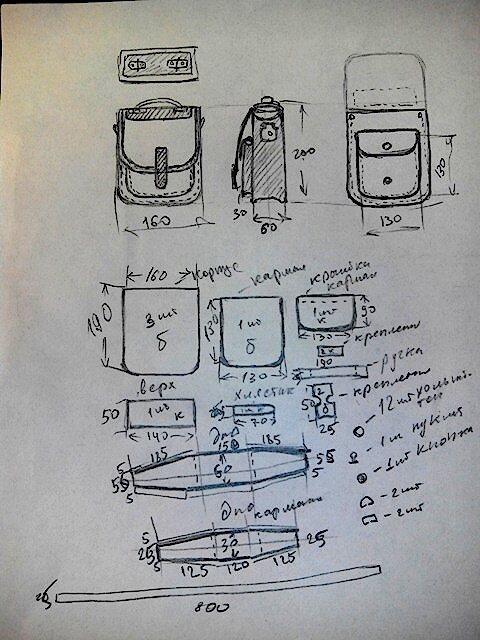 200
130
160
30
60
130
160
корпус
карман
крышка
карман
190
3 шт
б
130
1 шт
б
1 шт
к
90
130
130
крепление
1 к
100
ручка
верх
хлястик
крепление
50
1 шт
к
140
70
50
2
25
12 шт
Дно
185
150
185
5
55
5
60
55
1 шт
1 шт кнопка
- 2 шт
- 2 шт
Дно
кармана
5
25
5
30
25
125
120
125
25
800